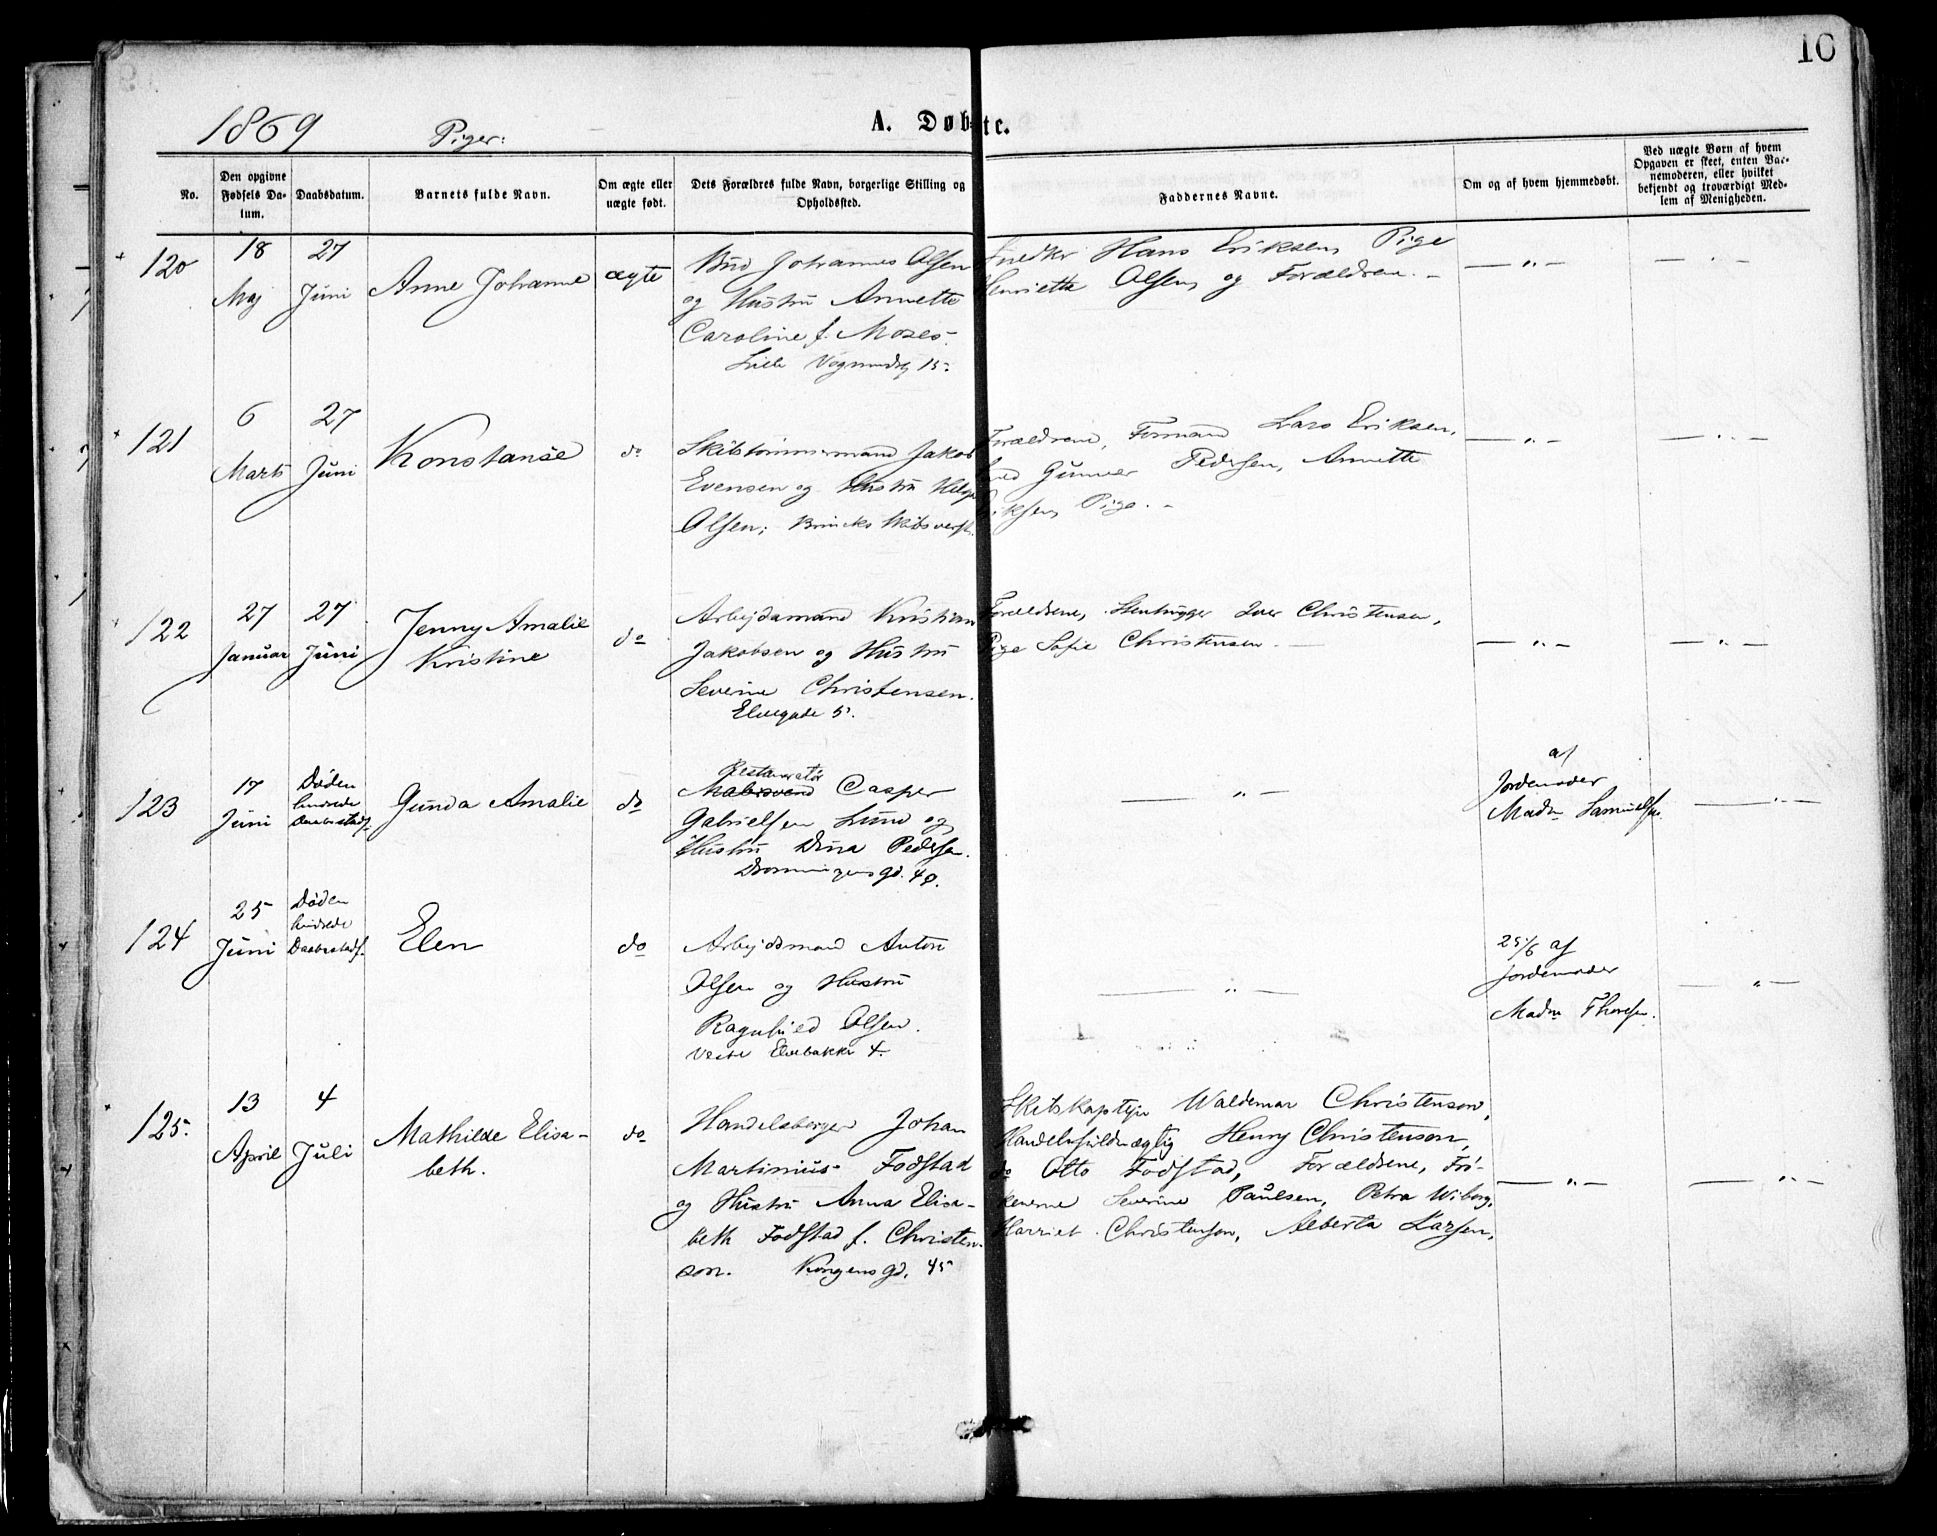 10
1869 Piger: A. Døbte.
No.
Den opgivne Fødsels Da-
tum.
Daabsdatum.
Barnets fulde Navn.
Om ægte eller
uægte født.
Dets Forældres fulde Navn, borgerlige Stilling og
Opholdssted.
Faddernes Navne.
Om og af hvem hjemmedøbt.
Ved uægte Børn af hvem
Opgaven er skeet, enten Bar-
nemoderen, eller hvilket
bekjendt og troværdigt Med-
lem af Menigheden.
120
18
Maj
27
Juni
Anne Johanne
ægte
Bud Johannes Olsen
og Hustru Annette
Caroline f. Moses.
Lille 15.
Snedker Hans Eriksen, Pige
Henriette Olsen, og Forældrene.
— " —
— " —
121
6
Marts
27
Juni
Konstanse
do
Skibstømmermand Jakob
Evensen og Hustru Helga
Olsen; Brincks Skibsverft.
Forældrene, Formand Lars Eriksen,
Gunner Pedersen, Annette
Eriksen, Pige.
— " —
— " —
122
27
Januar
27
Juni
Jenny Amalie
Kristine
do
Arbejdsmand Kristian
Jakobsen og Hustru
Severine Christensen.
Elvegade 5.
Forældrene, Stenhugger Iver Christensen,
Pige Sofie Christensen.
— " —
— " —
123
17
Juni
Døden
hindrede
Daabsstadf.
Gunda Amalie
do
Restauratør
Casper
Gabrielsen Lund og
Hustru Dina Pedersen.
Dronningens gd. 40.
— " —
af
Jordemoder
Madm Samuelsen.
— " —
124
25
Juni
Døden
hindrede
Daabsstadf.
Elen
do
Arbejdsmand Anton
Olsen og Hustru
Ragnhild Olsen.
Vestre Elvebakke 4.
— " —
25/6 af
Jordemoder
Madm Thoresen.
— " —
125.
13
April
4
Juli
Mathilde Elisa-
beth.
do
Handelsborger Johan
Martinius Fodstad
og Hustru Anna Elisa-
beth Fodstad f. Christen-
son. Kongens gd. 45
Skibskaptejn Waldemar Christenson,
Handelsfuldmægtig Henry Christenson,
do Otto Fodstad, Forældrene, Frø-
kenerne Severine Paulsen, Petra Wiborg,
Harriet Christenson, Alberta Larsen,
— " —
— " —